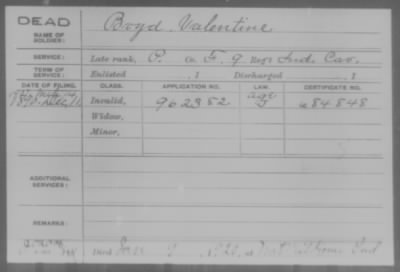 DEAD
NAME OF SOLDIER:
Boyd, Valentine
SERVICE:
Late rank, P. Co. F, 9 Reg't Ind. Cav.
TERM OF SERVICE:
Enlisted , 1 Discharged , 1
DATE OF FILING. CLASS. APPLICATION NO. LAW. CERTIFICATE NO.
1890. Invalid, 962352 684848
Widow,
Minor,
ADDITIONAL SERVICES:
REMARKS:
died at Ind